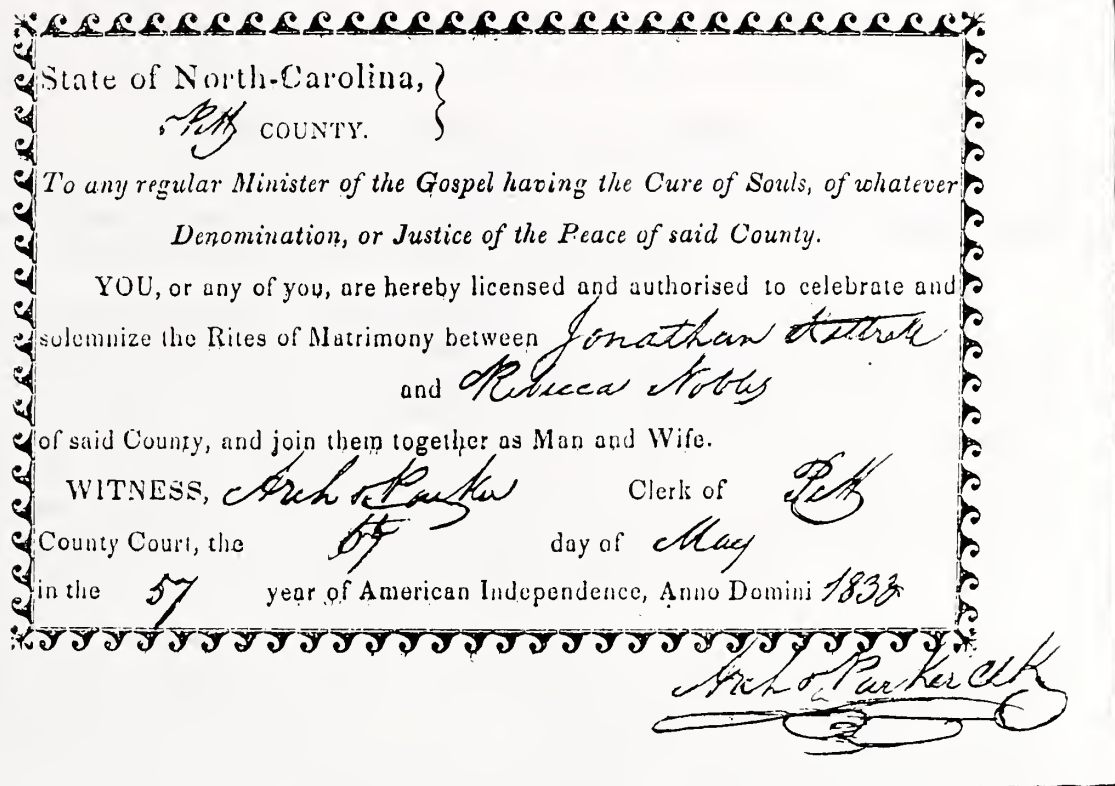 State of North-Carolina,
Pitt COUNTY.
To any regular Minister of the Gospel having the Cure of Souls, of whatever
Denomination, or Justice of the Peace of said County.
YOU, or any of you, are hereby licensed and authorised to celebrate and
solemnize the Rites of Matrimony between Jonathan
and Rebecca Nobles
of said County, and join them together as Man and Wife.
WITNESS, Arch Parker Clerk of Pitt
County Court, the day of May
in the 57 year of American Independence, Anno Domini 1833
Arch Parker Clk